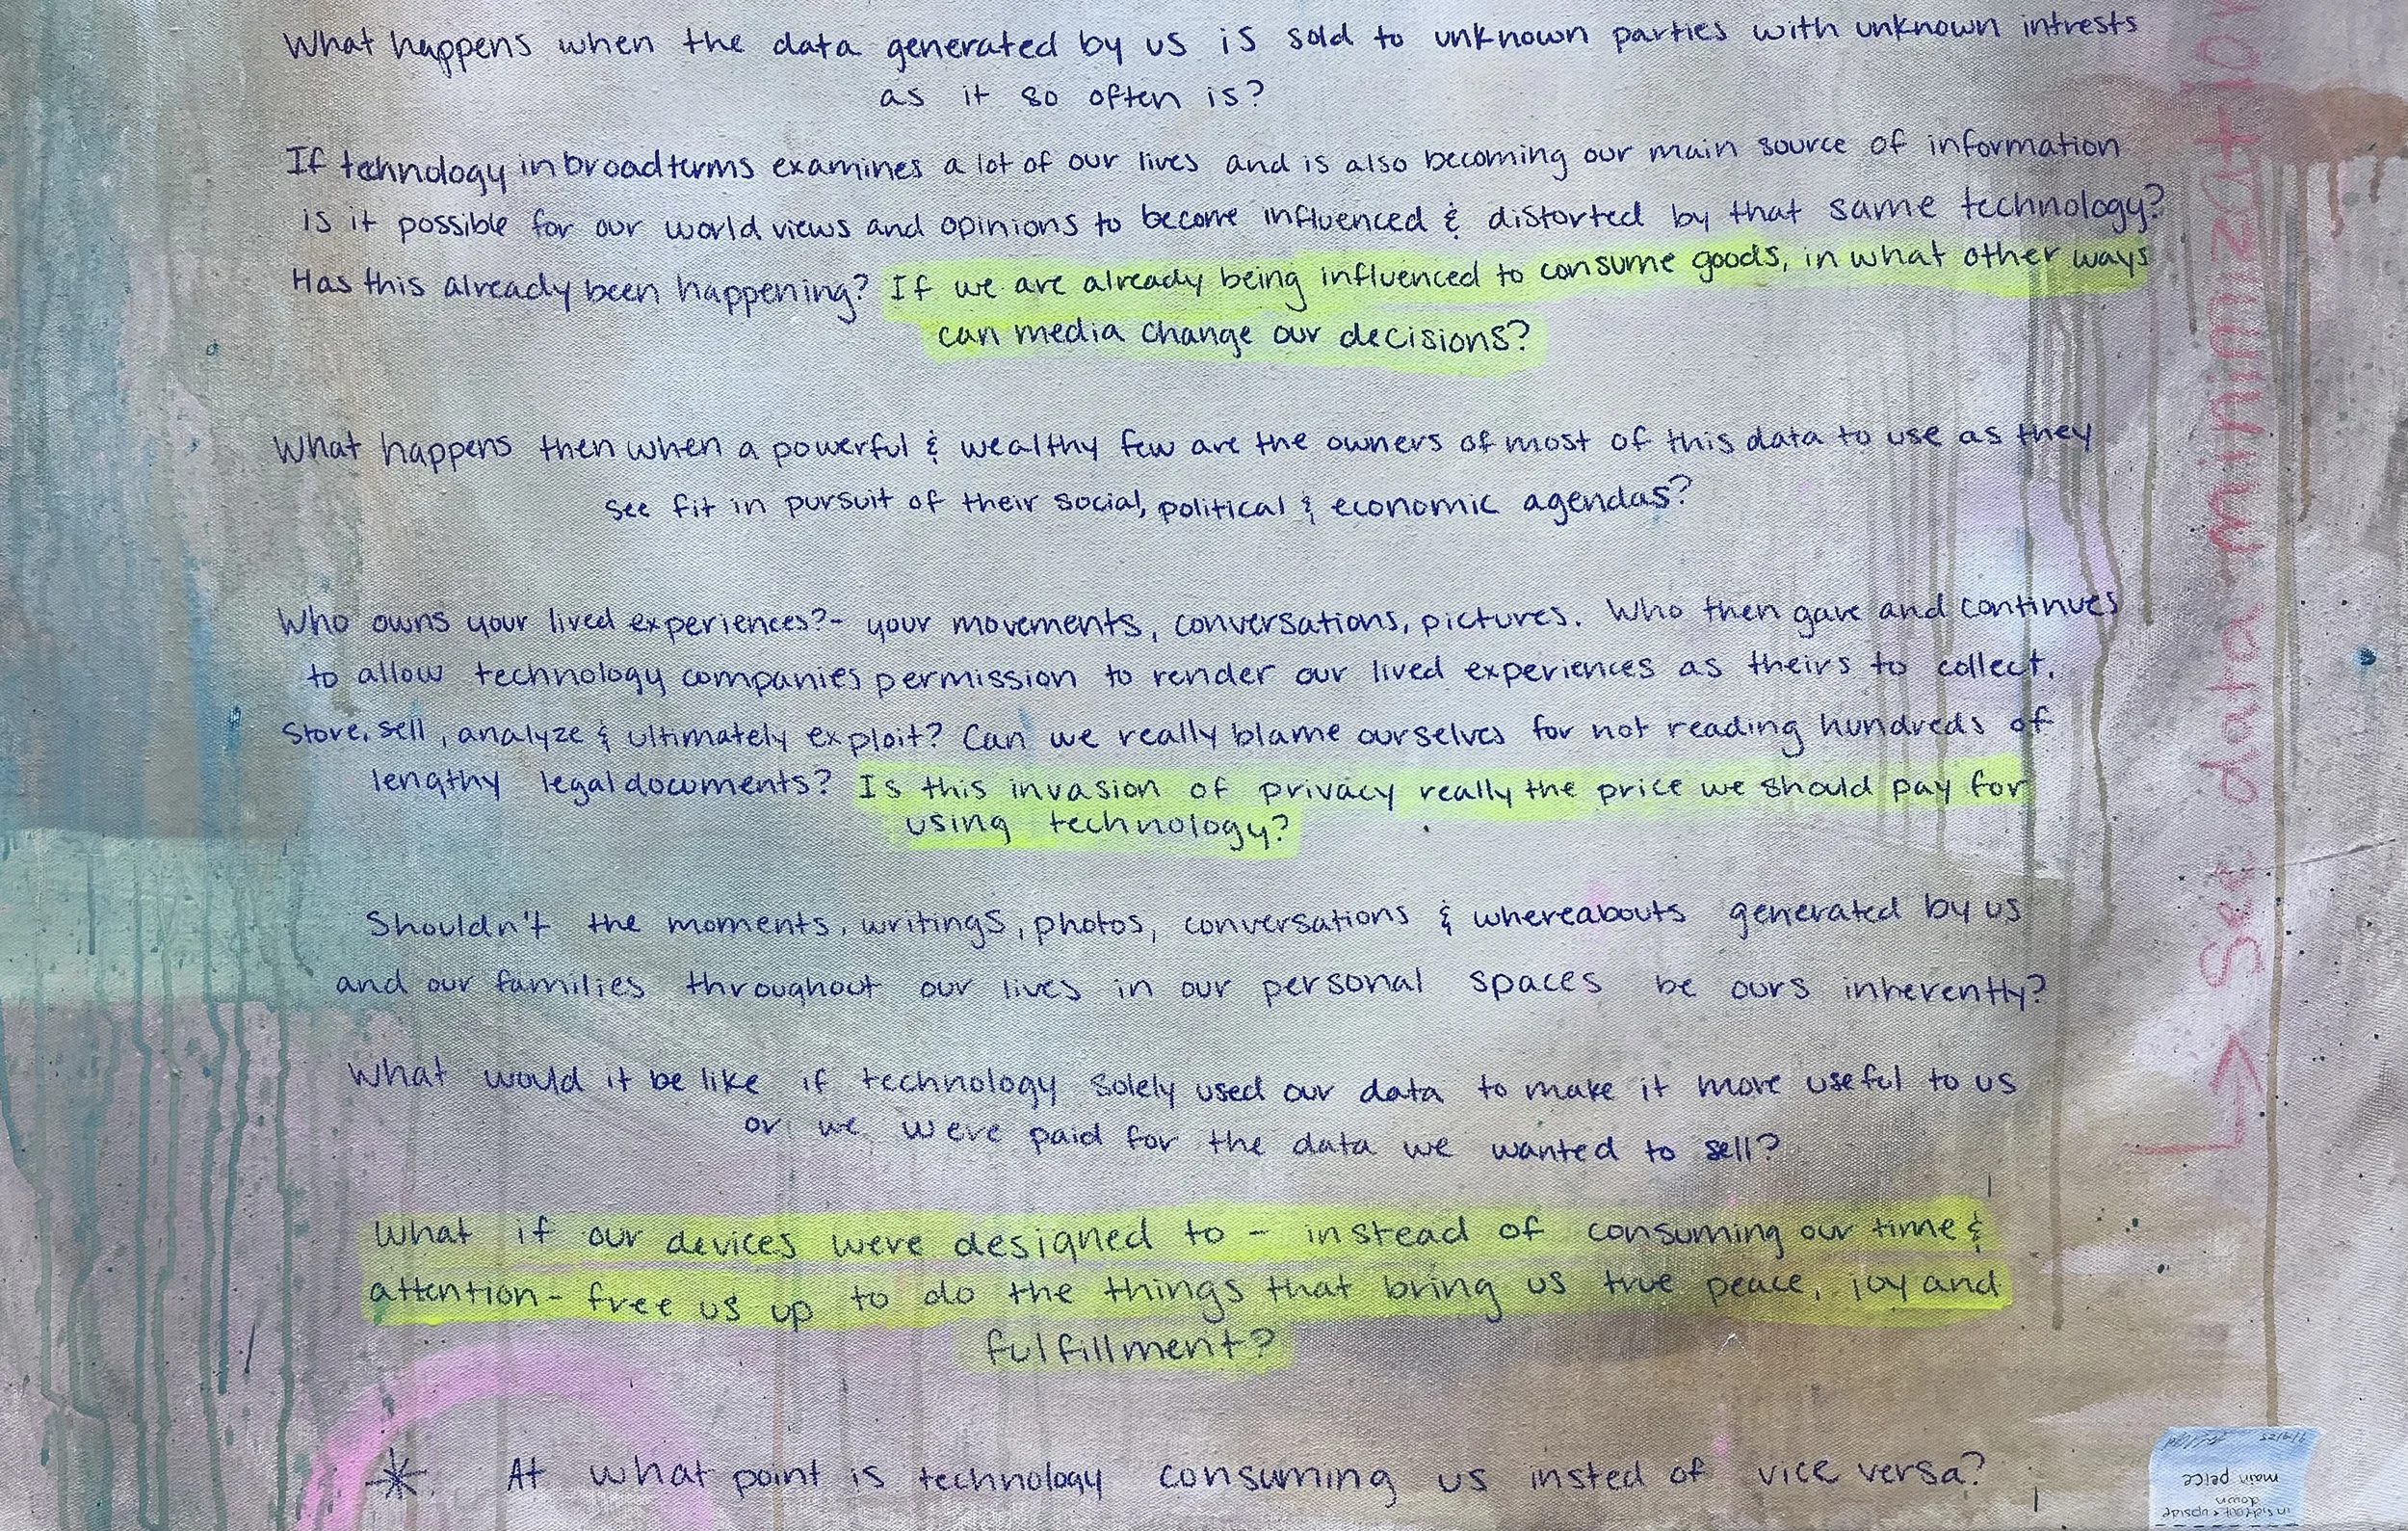 What happens when the data generated by us is sold to unknown parties with unknown intrests
as it so often is?
If technology in broad terms examines a lot of our lives and is also becoming our main source of information
is it possible for our world views and opinions to become influenced & distorted by that same technology?
Has this already been happening? If we are already being influenced to consume goods, in what other ways
can media change our decisions?
What happens then when a powerful & wealthy few are the owners of most of this data to use as they
see fit in pursuit of their social, political & economic agendas?
Who owns your lived experiences?- your movements, conversations, pictures. Who then gave and continues
to allow technology companies permission to render our lived experiences as theirs to collect.
Store, sell, analyze & ultimately exploit? Can we really blame ourselves for not reading hundreds of
lengthy legal documents? Is this invasion of privacy really the price we should pay for
using technology?
Shouldn't the moments, writings, photos, conversations & whereabouts generated by us
and our families throughout our lives in our personal spaces be ours inherently?
What would it be like if technology solely used our data to make it more useful to us
or we were paid for the data we wanted to sell?
What if our devices were designed to - instead of consuming our time &
attention - free us up to do the things that bring us true peace, joy and
fulfillment?
* At what point is technology consuming us insted of vice versa?
data
inside out + upside
down
main peice